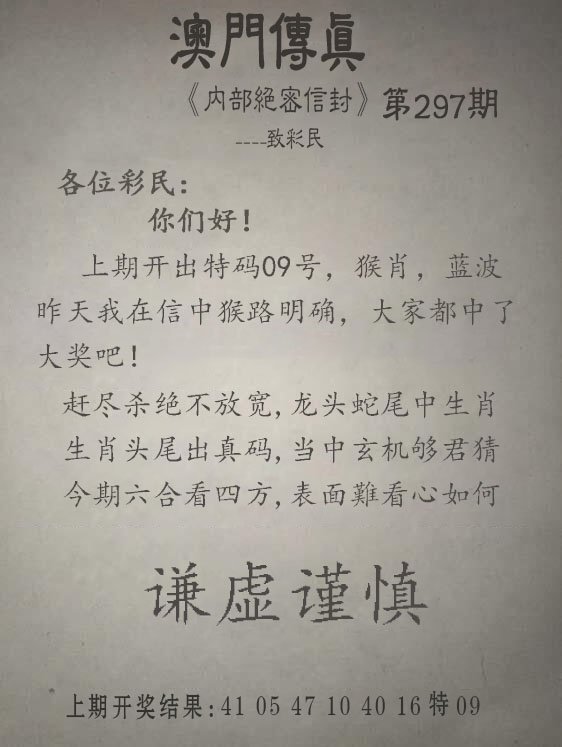 澳門傳真
《内部絕密信封》第297期
----致彩民
各位彩民：
你们好！
上期开出特码09号，猴肖，蓝波
昨天我在信中猴路明确，大家都中了
大奖吧！
赶尽杀绝不放宽,龙头蛇尾中生肖
生肖头尾出真码,当中玄机够君猜
今期六合看四方,表面難看心如何
谦虚谨慎
上期开奖结果:41 05 47 10 40 16 特 09